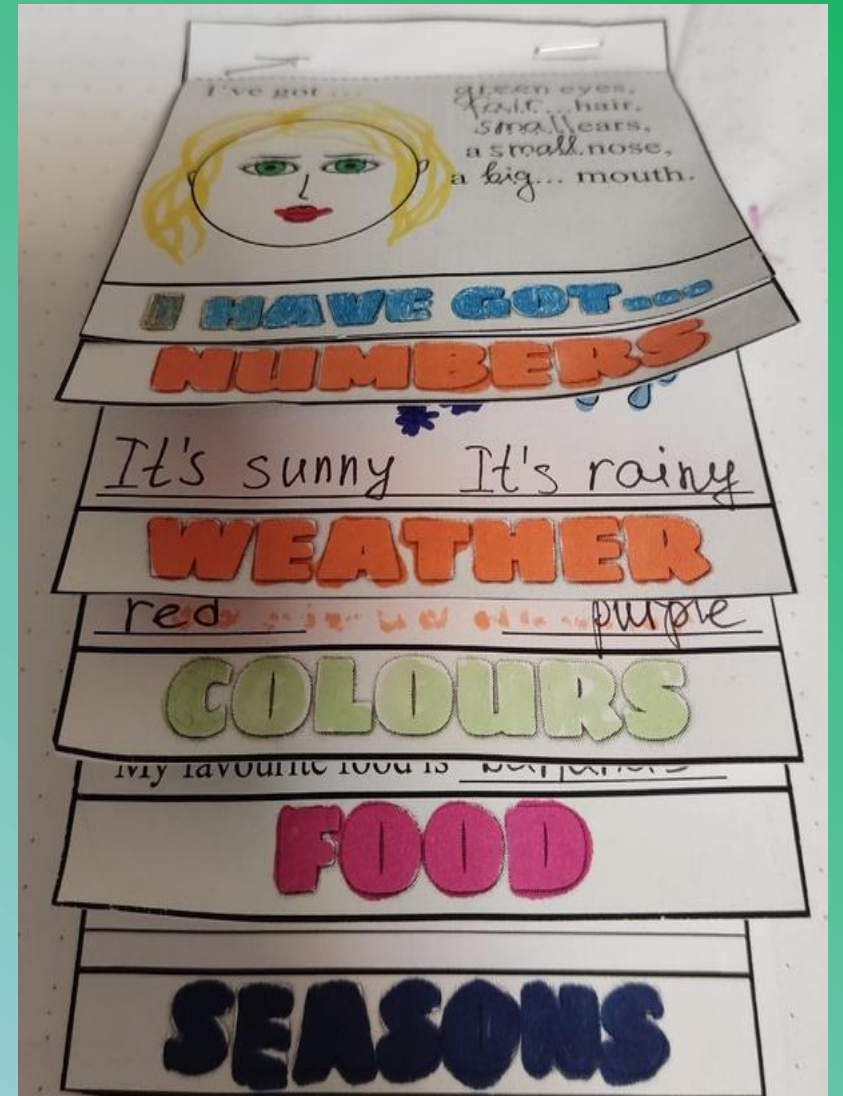 I've got ...
green eyes,
fair... hair,
small ears,
a small nose,
a big... mouth.
I HAVE GOT...
NUMBERS
It's sunny It's rainy
WEATHER
red purple
COLOURS
My favourite food is
FOOD
SEASONS